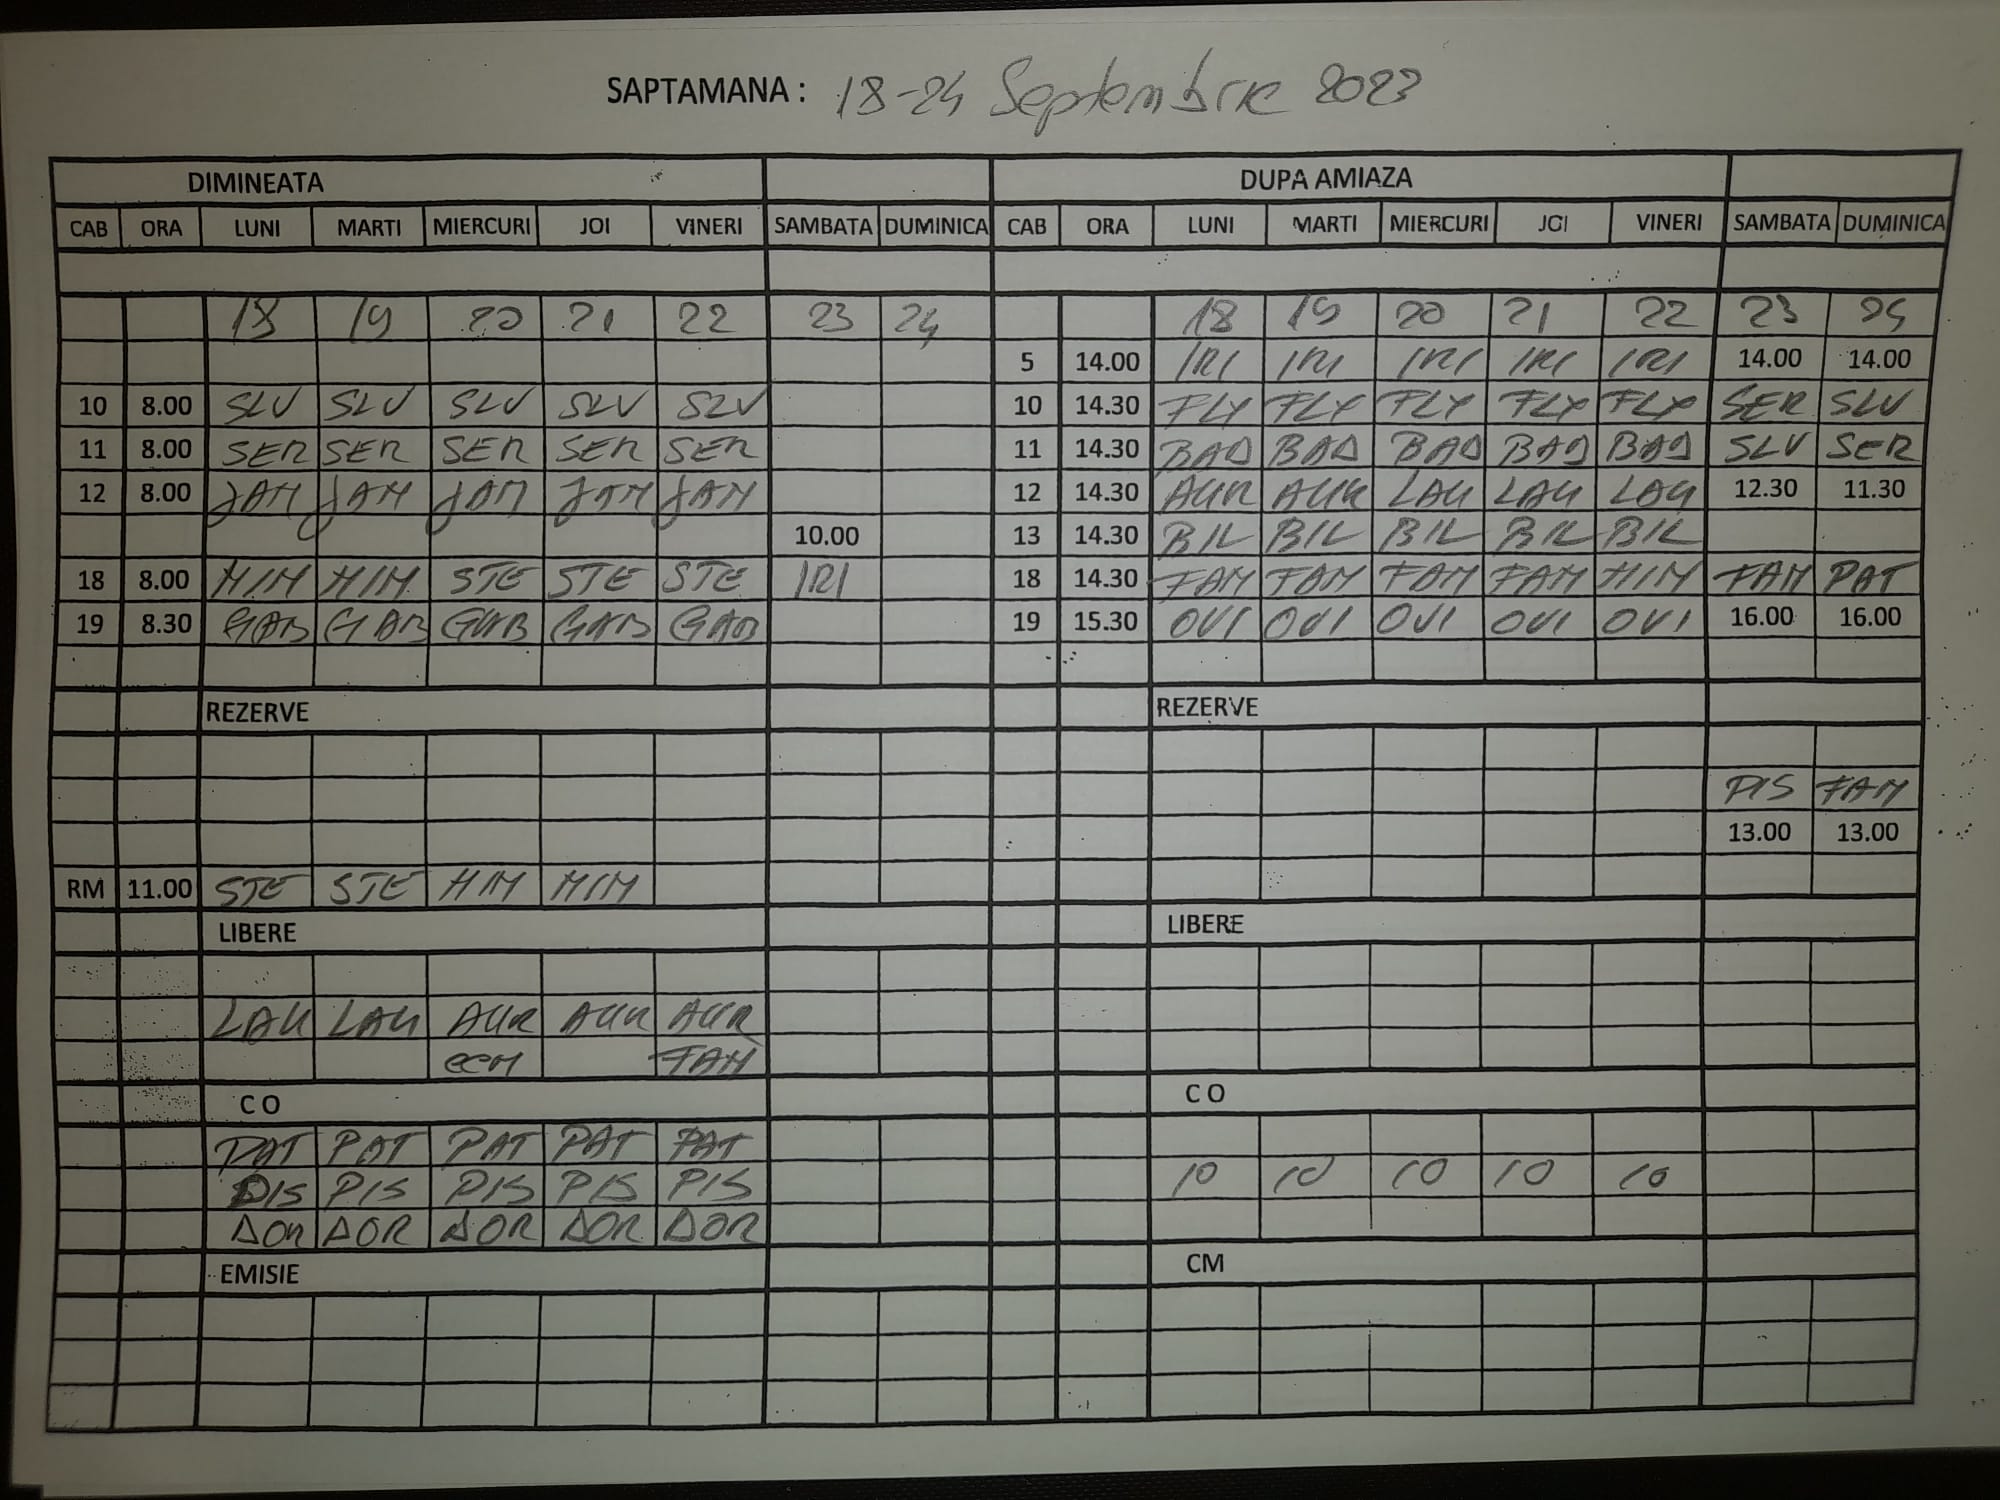 SAPTAMANA : 18-24 Septembrie 2023
DIMINEATA DUPA AMIAZA
CAB ORA LUNI MARTI MIERCURI JOI VINERI SAMBATA DUMINICA CAB ORA LUNI MARTI MIERCURI JOI VINERI SAMBATA DUMINICA
18 19 20 21 22 23 24 18 19 20 21 22 23 24
5 14.00 IRI IRI IRI IRI IRI 14.00 14.00
10 8.00 SLV SLV SLV SLV SLV 10 14.30 FLY FLY FLY FLY FLY SER SLV
11 8.00 SER SER SER SER SER 11 14.30 BAD BAD BAD BAD BAD SLV SER
12 8.00 JAM JAM JAM JAM JAM 12 14.30 AUR AUR LAU LAU LAU 12.30 11.30
10.00 13 14.30 BIL BIL BIL BIL BIL
18 8.00 MIM MIM STE STE STE IRI 18 14.30 FAM FAM FAM FAM MIM FAM PAT
19 8.30 GAB GAB GAB GAB GAB 19 15.30 OVI OVI OVI OVI OVI 16.00 16.00
REZERVE REZERVE
PIS FAM
13.00 13.00
RM 11.00 STE STE MIM MIM
LIBERE LIBERE
LAU LAU AUR AUR AUR
FAM
C O C O
PAT PAT PAT PAT PAT
PIS PIS PIS PIS PIS 10 10 10 10 10
DOR DOR DOR DOR DOR
EMISIE CM